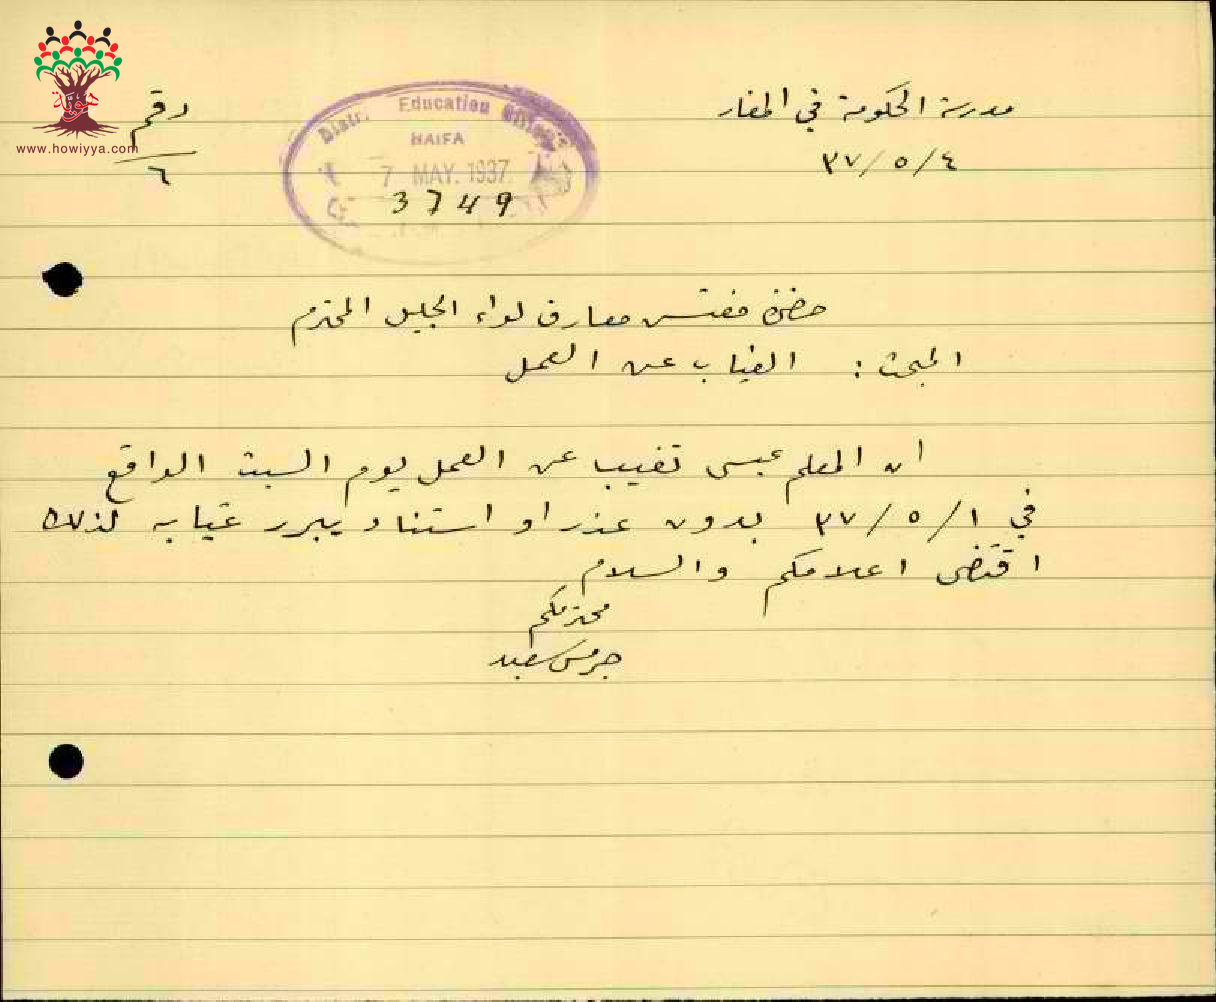 هوية
www.howiyya.com
رقم
٦
Distr. Education Office
HAIFA
7 MAY. 1937
3749
مدرسة الحكومة في المغار
٣٧/٥/٤
حضرة مفتش معارف لواء الجليل المحترم
المبحث : الغياب عن العمل
ان المعلم عيسى تغيب عن العمل يوم السبت الواقع
في ٣٧/٥/١ بدون عذر او استناد يبرر غيابه لذلك
اقتضى اعلامكم والسلام
محترمكم
جرمس سعيد